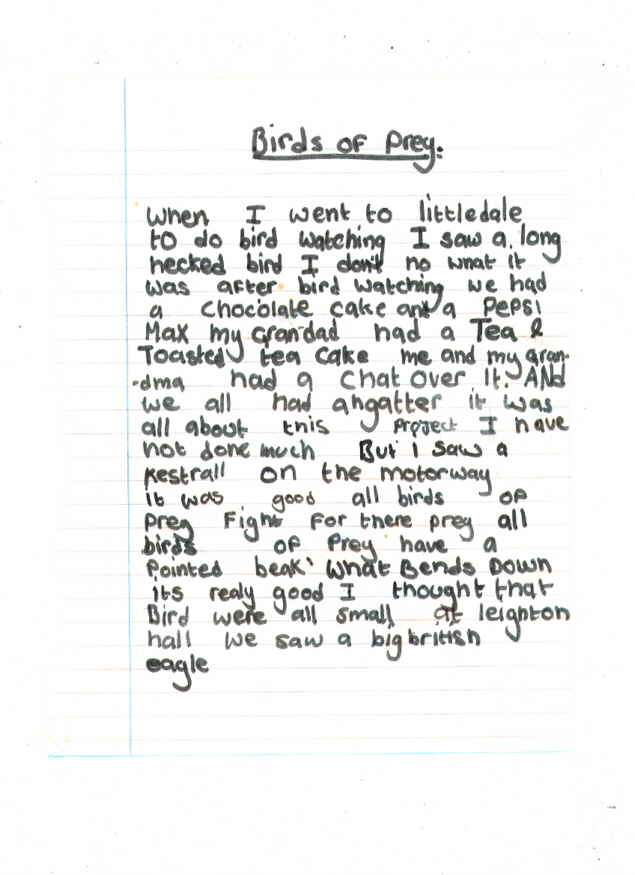 Birds of Prey.
When I went to littledale
to do bird watching I saw a long
necked bird I don't no what it
was after bird watching we had
a chocolate cake and a Pepsi
Max my Grandad had a Tea &
Toasted tea cake me and my gran-
-dma had a chat over it. AND
we all had a natter it was
all about this project I have
not done much But I saw a
kestrall on the motorway
it was good all birds of
prey Fight for there prey all
birds of Prey have a
Pointed beak what Bends Down
its realy good I thought that
Bird were all small at leighton
hall we saw a big british
eagle